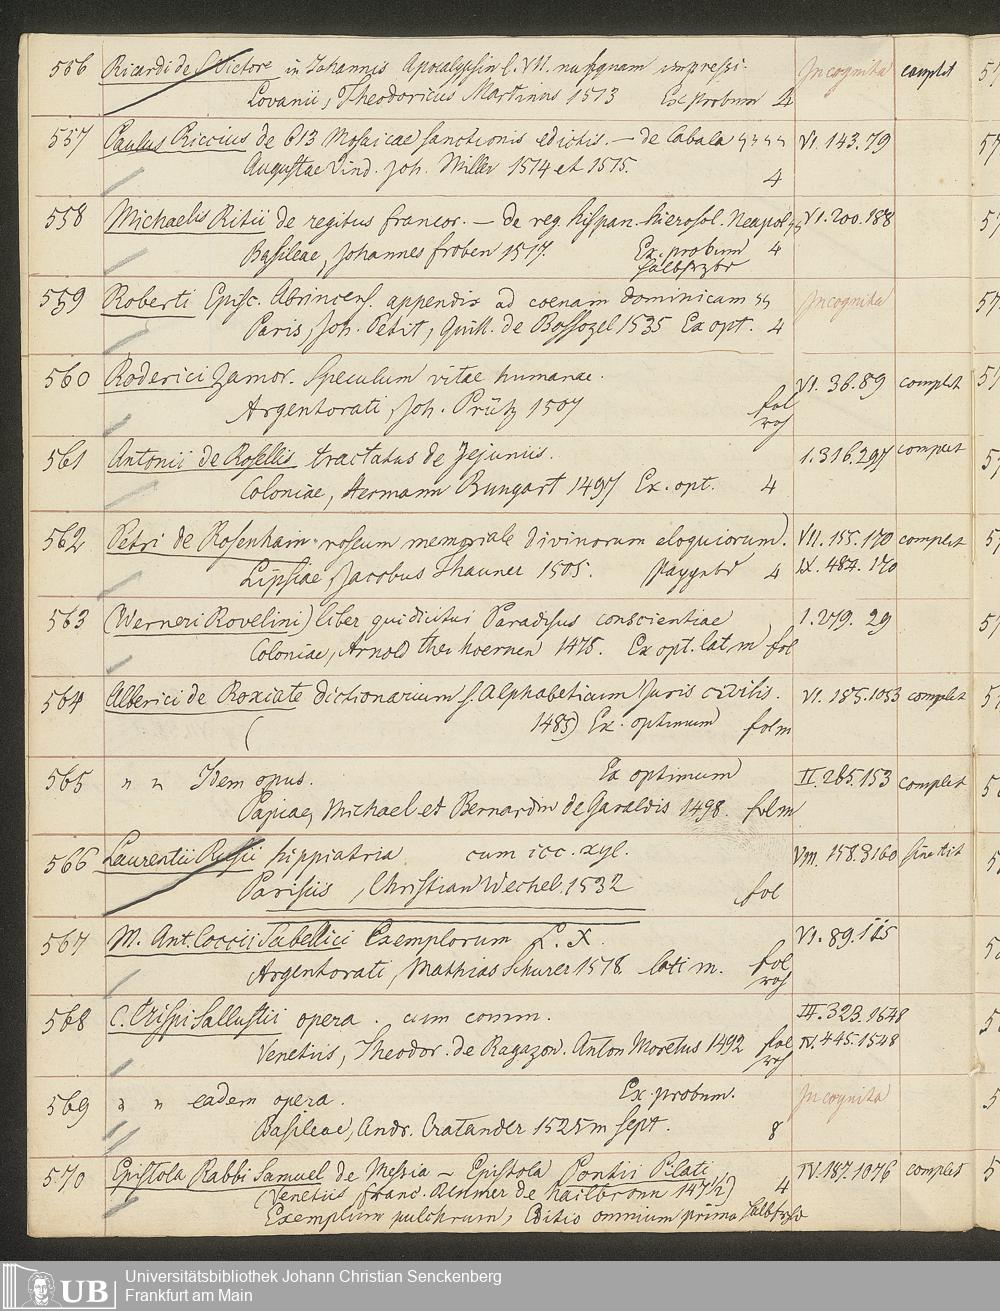 556 Ricardi de S Victore in Johannis Apocalypsin l. VII. nunquam impressi. Incognita complet
Lovanii, Theodoricus Martinus 1513 Ex probum 4
557 Paulus Riccius de 613 Mosaicae sanctionis edictis. — de Cabala VI. 143. 79
Augustae Vind. Joh. Miller 1514 et 1515. 4
558 Michaelis Ritii de regibus francor. — de reg. hispan. hierosol. Neapol VI. 200. 188
Basileae, Johannes Froben 1517. Ex. probum 4
559 Roberti Episc. Abrincens. appendix ad coenam dominicam Incognita
Paris, Joh. Petit, Guill. de Bossozel 1535 Ex opt. 4
560 Roderici Zamor. Speculum vitae humanae. VI. 36. 89 complet
Argentorati, Joh. Prütz 1507 fol
561 Antonii de Rosellis tractatus de Jejuniis. 1. 316. 297 complet
Coloniae, Hermann Bungart 1497 Ex. opt. 4
562 Petri de Rosenhaim roseum memoriale divinorum eloquiorum. VII. 155. 170 complet
Lipsiae, Jacobus Thanner 1505. 4 IX. 484. 170
563 (Werneri Rovelini) liber qui dicitur Paradisus conscientiae 1. 279. 29
Coloniae, Arnold ther hoernen 1475. Ex opt. lat. m fol
564 Alberici de Roxiate dictionarium s. Alphabetium Juris civilis. VI. 185. 1053 complet
( 1485) Ex. optimum fol m
565 " " Idem opus. Ex optimum II. 265. 153 complet
Papiae, Michael et Bernardin de Garaldis 1498. fol m
566 Laurentii Rusii hippiatria cum icc. xyl. VIII. 158. 3160
Parisiis, Christian Wechel 1532 fol
567 M. Ant. Coccii Sabellici Exemplorum L. X. VI. 89.
Argentorati, Mathias Schurer 1518. lati m. fol
568 C. Crispi Sallustii opera. cum comm. III. 323. 1648
Venetiis, Theodor. de Ragazon. Anton Moretus 1492 fol IV. 445. 1548
569 " " eadem opera. Ex. probum. Incognita
Basileae, Andr. Cratander 1525 m Sept. 8
570 Epistola Rabbi Samuel de Messia — Epistola Pontii Pilati IV. 187. 1076 complet
(Venetiis Franc. Renner de Hailbronn 147½) 4
Exemplum pulchrum, Editio omnium prima
UB Universitätsbibliothek Johann Christian Senckenberg
Frankfurt am Main